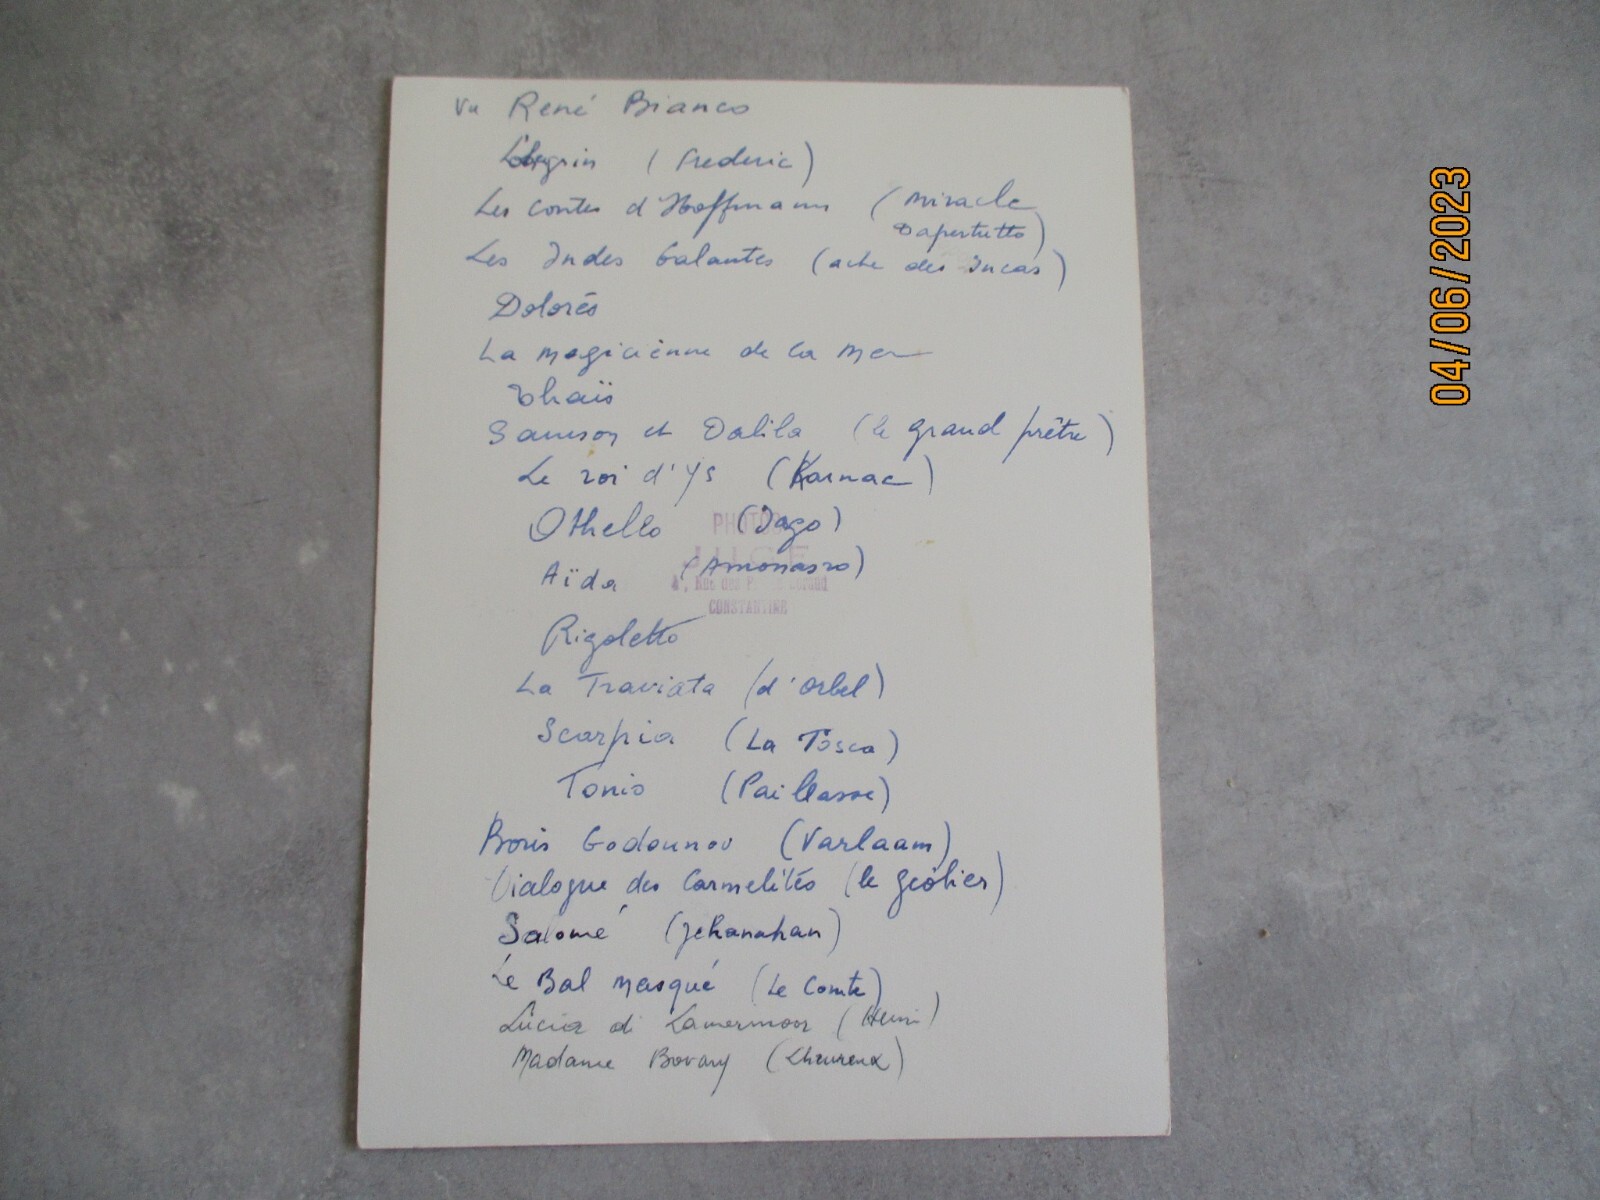 Vu René Bianco
Lohengrin (Frederic)
Les Contes d'Hoffmann (Miracle
Dapertutto)
Les Indes Galantes (acte des Incas)
Dolorés
La magicienne de la mer
Thaïs
Samson et Dalila (le grand prêtre)
Le roi d'Ys (Karnac)
Othello (Jago)
Aïda (Amonasro)
Rigoletto
La Traviata (d'Orbel)
Scarpia (La Tosca)
Tonio (Paillasse)
Boris Godounov (Varlaam)
Dialogue des Carmelités (le geôlier)
Salomé (Jekanahan)
Le Bal masqué (Le Comte)
Lucia di Lamermoor (Henri)
Madame Bovary (Lheureux)
PHOTO
Rue des
CONSTANTINE
04/06/2023